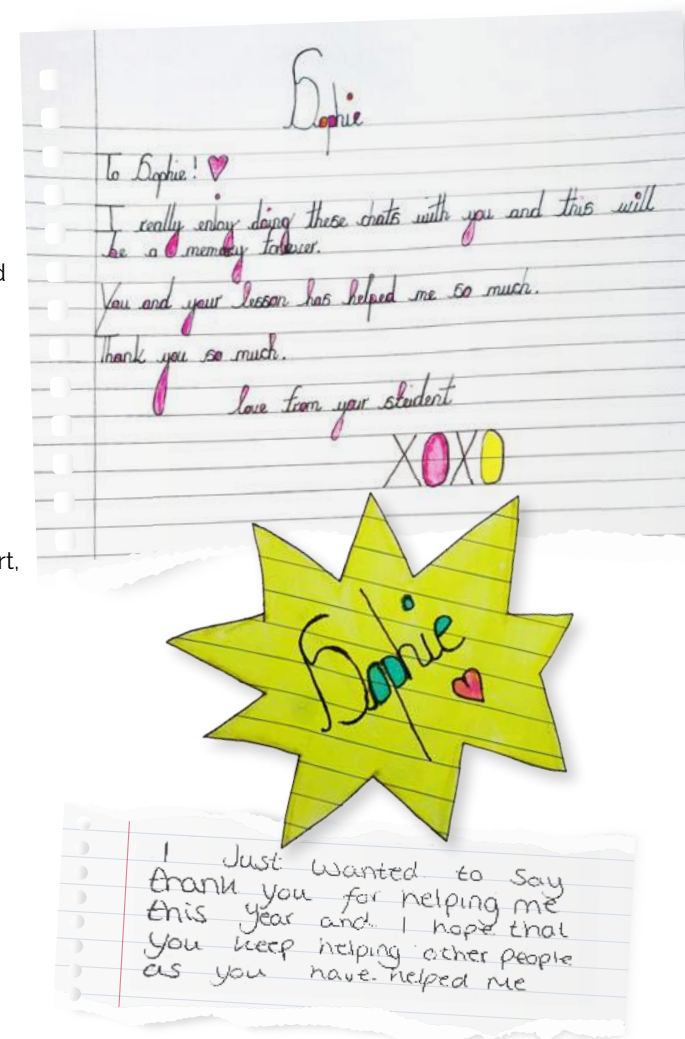 Sophie
To Sophie!
I really enjoy doing these chats with you and this will
be a memory forever.
You and your lesson has helped me so much.
Thank you so much.
love from your student
XOXO
Sophie
I Just wanted to say
thank you for helping me
this year and I hope that
you keep helping other people
as you have helped me